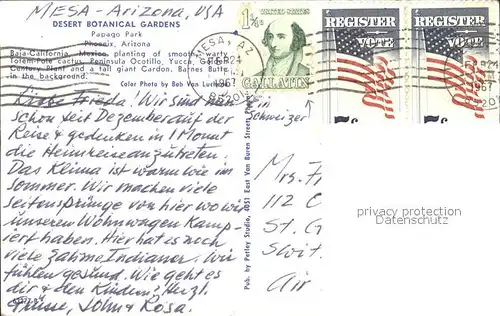 MESA - Arizona, USA
DESERT BOTANICAL GARDENS
Papago Park
Phoenix, Arizona
Baja-California, Mexico planting of smooth
Totem Pole cactus, Peninsula Ocotillo, Yucca,
Century Plant and a tall giant Cardon. Barnes Butte
in the background.
Color Photo by Bob Van
UNITED STATES
GALLATIN
REGISTER
VOTE
REGISTER
VOTE
MESA, AZ
1967
Liebe Frieda! Wir sind nun
schon seit Dezember auf der
Reise & gedenken in 1 Monat
die Heimreise anzutreten.
Das Klima ist warm wie im
Sommer. Wir machen viele
Seitensprünge von hier wo wir
unseren Wohnwagen kamp-
iert haben. Hier hat es noch
viele zahme Indianer. Wir
fühlen gesund. Wie geht es
dir & den Kindern? Herzl.
Grüsse, John & Rosa.
Pub. by Petley Studio, 4051 East Van Buren Street
ein
Schweizer
Mrs. F
112 C
St. G
Swit
Air
privacy protection
Datenschutz